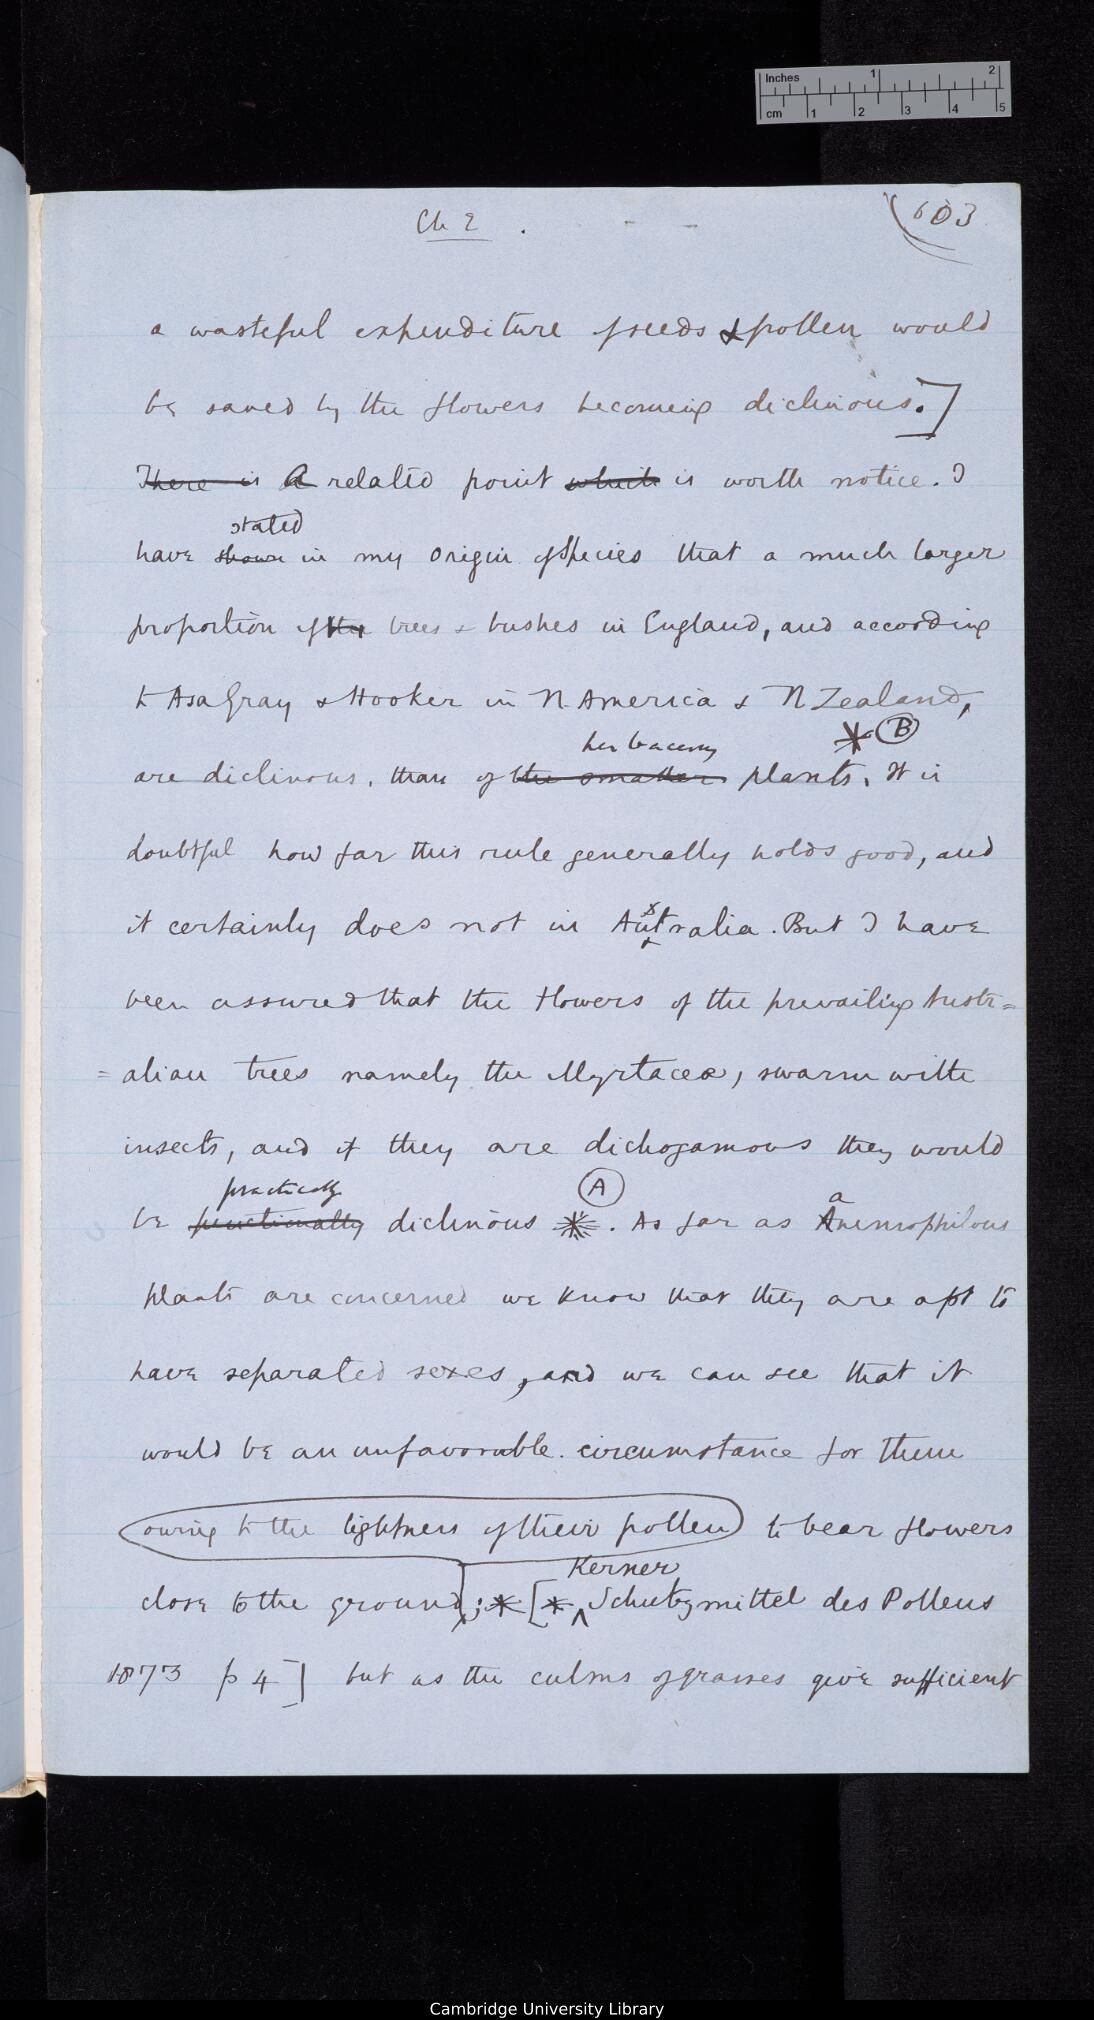 Inches 1 2
cm 1 2 3 4 5
Ch 2 .
603
a wasteful expenditure of seeds & pollen would
be saved by the flowers becoming diclinous.]
There is A related point which is worth notice. I
stated
have shown in my Origin of Species that a much larger
proportion of the trees & bushes in England, and according
to Asa Gray & Hooker in N. America & N Zealand,
herbaceous * B
are diclinous, than of the smaller plants. It is
doubtful how far this rule generally holds good, and
it certainly does not in Australia. But I have
been assured that the flowers of the prevailing Austr=
=alian trees namely the Myrtaceæ, swarm with
insects, and if they are dichogamous they would
practically A a
be functionally diclinous *. As far as Anemophilous
plants are concerned we know that they are apt to
have separated sexes, and we can see that it
would be an unfavorable circumstance for them
owing to the lightness of their pollen to bear flowers
Kerner
close to the ground]; * [* Schutzmittel des Pollens
1873 p 4] but as the culms of grasses give sufficient
Cambridge University Library